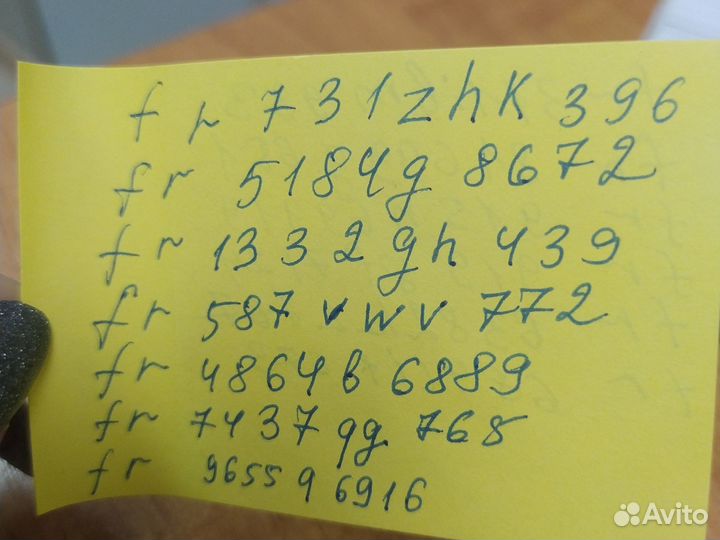 fr 731zhk396
fr 5184g 8672
fr 1332gh 439
fr 587 vwv 772
fr 4864b 6889
fr 7437gg 768
fr 9655 9 6916
Avito